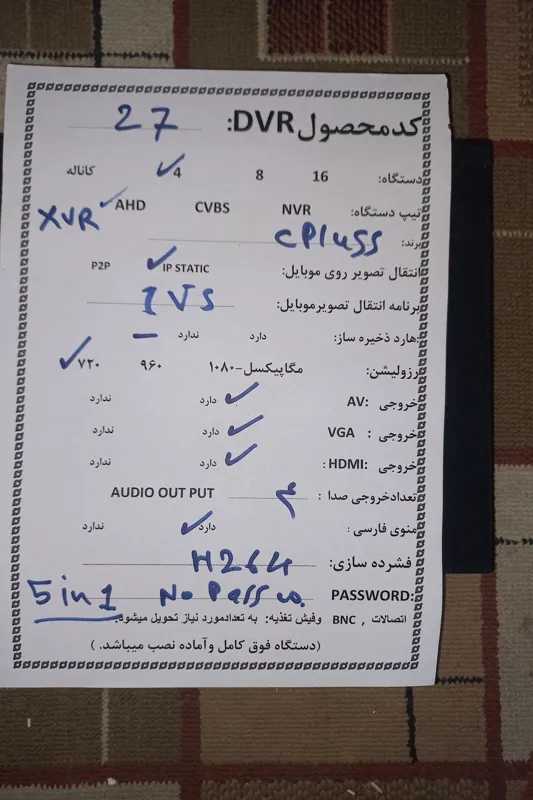 کدمحصول DVR: 27
دستگاه: 16 8 4 ✓ کاناله
تیپ دستگاه: NVR CVBS AHD ✓ XVR
برند: cPluss
انتقال تصویر روی موبایل: IP STATIC ✓ P2P
برنامه انتقال تصویرموبایل: IVS
هارد ذخیره ساز: دارد ندارد –
رزولیشن: مگاپیکسل-۱۰۸۰ ۹۶۰ ۷۲۰ ✓
خروجی AV: دارد ✓ ندارد
خروجی VGA : دارد ✓ ندارد
خروجی HDMI: دارد ✓ ندارد
تعدادخروجی صدا : ۴ AUDIO OUT PUT
منوی فارسی : دارد ✓ ندارد
فشرده سازی: H264
PASSWORD: No Pass 5 in 1
اتصالات , BNC وفیش تغذیه: به تعدادمورد نیاز تحویل میشود.
(دستگاه فوق کامل وآماده نصب میباشد. )